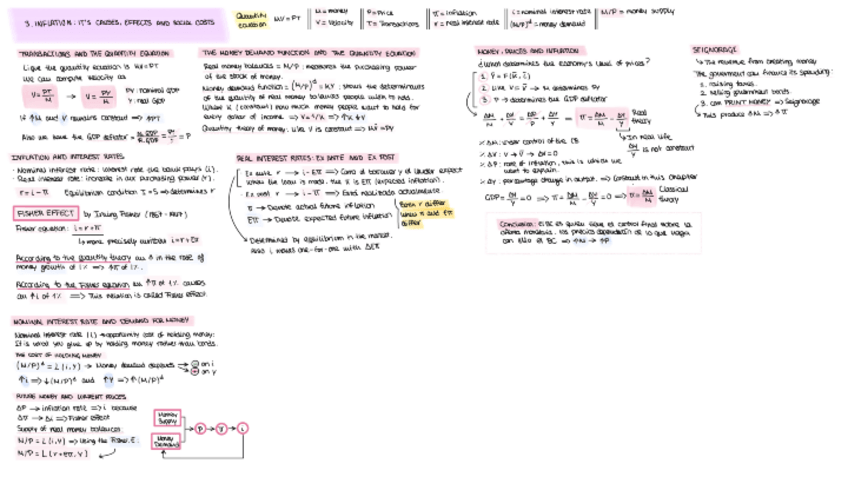 3. INFLATION: IT'S CAUSES, EFFECTS AND SOCIAL COSTS
Quantity Equation MV = PT
M = Money
V = Velocity
P = Price
T = Transactions
π = Inflation
r = real interest rate
i = nominal interest rate
(M/P)^d = money demand
M/P = money supply
TRANSACTIONS AND THE QUANTITY EQUATION
Like the quantity equation is MV = PT
we can compute velocity as
V = PT/M → V = PY/M
PY: nominal GDP
Y: real GDP
If ↑M and V remains constant => ↑PY
Also we have the GDP deflator = N.GDP/R.GDP = PY/Y = P
INFLATION AND INTEREST RATES
· Nominal interest rate: interest rate the bank pays (i).
· Real interest rate: increase in our purchasing power (r).
r = i - π Equilibrium condition I = S => determines r
FISHER EFFECT by Irving Fisher
Fisher equation: i = r + π
↳ more precisely written i = r + Eπ
According to the quantity theory an ↑ in the rate of
money growth of 1% => ↑π of 1%.
According to the Fisher equation an ↑π of 1% causes
an ↑i of 1% => This relation is called Fisher effect.
NOMINAL INTEREST RATE AND DEMAND FOR MONEY
Nominal interest rate (i) → opportunity cost of holding money:
It is what you give up by holding money rather than bonds.
THE COST OF HOLDING MONEY
(M/P)^d = L(i,Y) → Money demand depends → ⊖ on i
→ ⊕ on Y
↑i => ↓(M/P)^d and ↑Y => ↑(M/P)^d
FUTURE MONEY AND CURRENT PRICES
ΔP → inflation rate => i because
Δπ → Δi => Fisher effect
Supply of real money balances:
M/P = L(i,Y) => Using the Fisher E:
M/P = L(r+Eπ, Y)
Money Supply
Money Demand
P → π → i
THE MONEY DEMAND FUNCTION AND THE QUANTITY EQUATION
Real money balances = M/P: measures the purchasing power
of the stock of money.
Money demand function = (M/P)^d = kY: shows the determinants
of the quantity of real money balances people wish to hold.
Where k (constant) how much money people want to hold for
every dollar of income => V = 1/k => ↑k ↓V
Quantity theory of money: Like V is constant => MV̄ = PY
REAL INTEREST RATES: EX ANTE AND EX POST
Ex ante r → i - Eπ => Como el borrower y el lender expect
when the loan is made, the π is Eπ (expected inflation).
Ex post r → i - π => Está realizada actualmente.
π → Denote actual future inflation
Eπ → Denote expected future inflation
Both r differ when π and Eπ differ
Determined by equilibrium in the market,
thus i moves one-for-one with ΔEπ
MONEY, PRICES AND INFLATION
¿What determines the economy's level of prices?
1. Ȳ = F(K̄, L̄)
2. Like V = V̄ → M determines PY
3. P → determines the GDP deflator
ΔM/M + ΔV/V = ΔP/P + ΔY/Y => π = ΔM/M - ΔY/Y Real theory
↳ In real life ΔV/V is not constant
% ΔM: under control of the CB
% ΔV: V → V̄ → ΔV = 0
% ΔP: rate of inflation, this is which we
want to explain.
% ΔY: percentage change in output => Constant in this chapter
GDP = ΔY/Y = 0 => π = ΔM/M - ΔY/Y = 0 => π = ΔM/M Classical theory
Conclusion: El BC es quien tiene el control final sobre la
oferta monetaria, los precios dependerán de lo que haga
con ello el BC => ↑M → ↑P
SEIGNORAGE
↳ The revenue from creating money
The government can finance its spending:
1. raising taxes.
2. selling government bonds
3. can PRINT MONEY => Seignorage
↳ This produce ΔM => ↑π